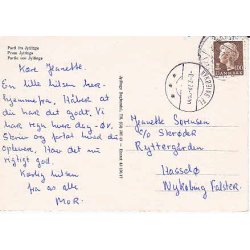 Parti fra Jyllinge
From Jyllinge
Partie von Jyllinge
Kære Jeanette.
En lille hilsen her-
hjemmefra. Håber at
du har det godt. Vi
har regn hver dag.
Skriv og fortæl hvad du
oplever. Hav det nu
rigtigt god.
Kærlig hilsen
fra os alle
MOR.
DANMARK
Jeanette Sørensen
c/o Skrøder
Ryttergården
Hasselø
Nykøbing Falster